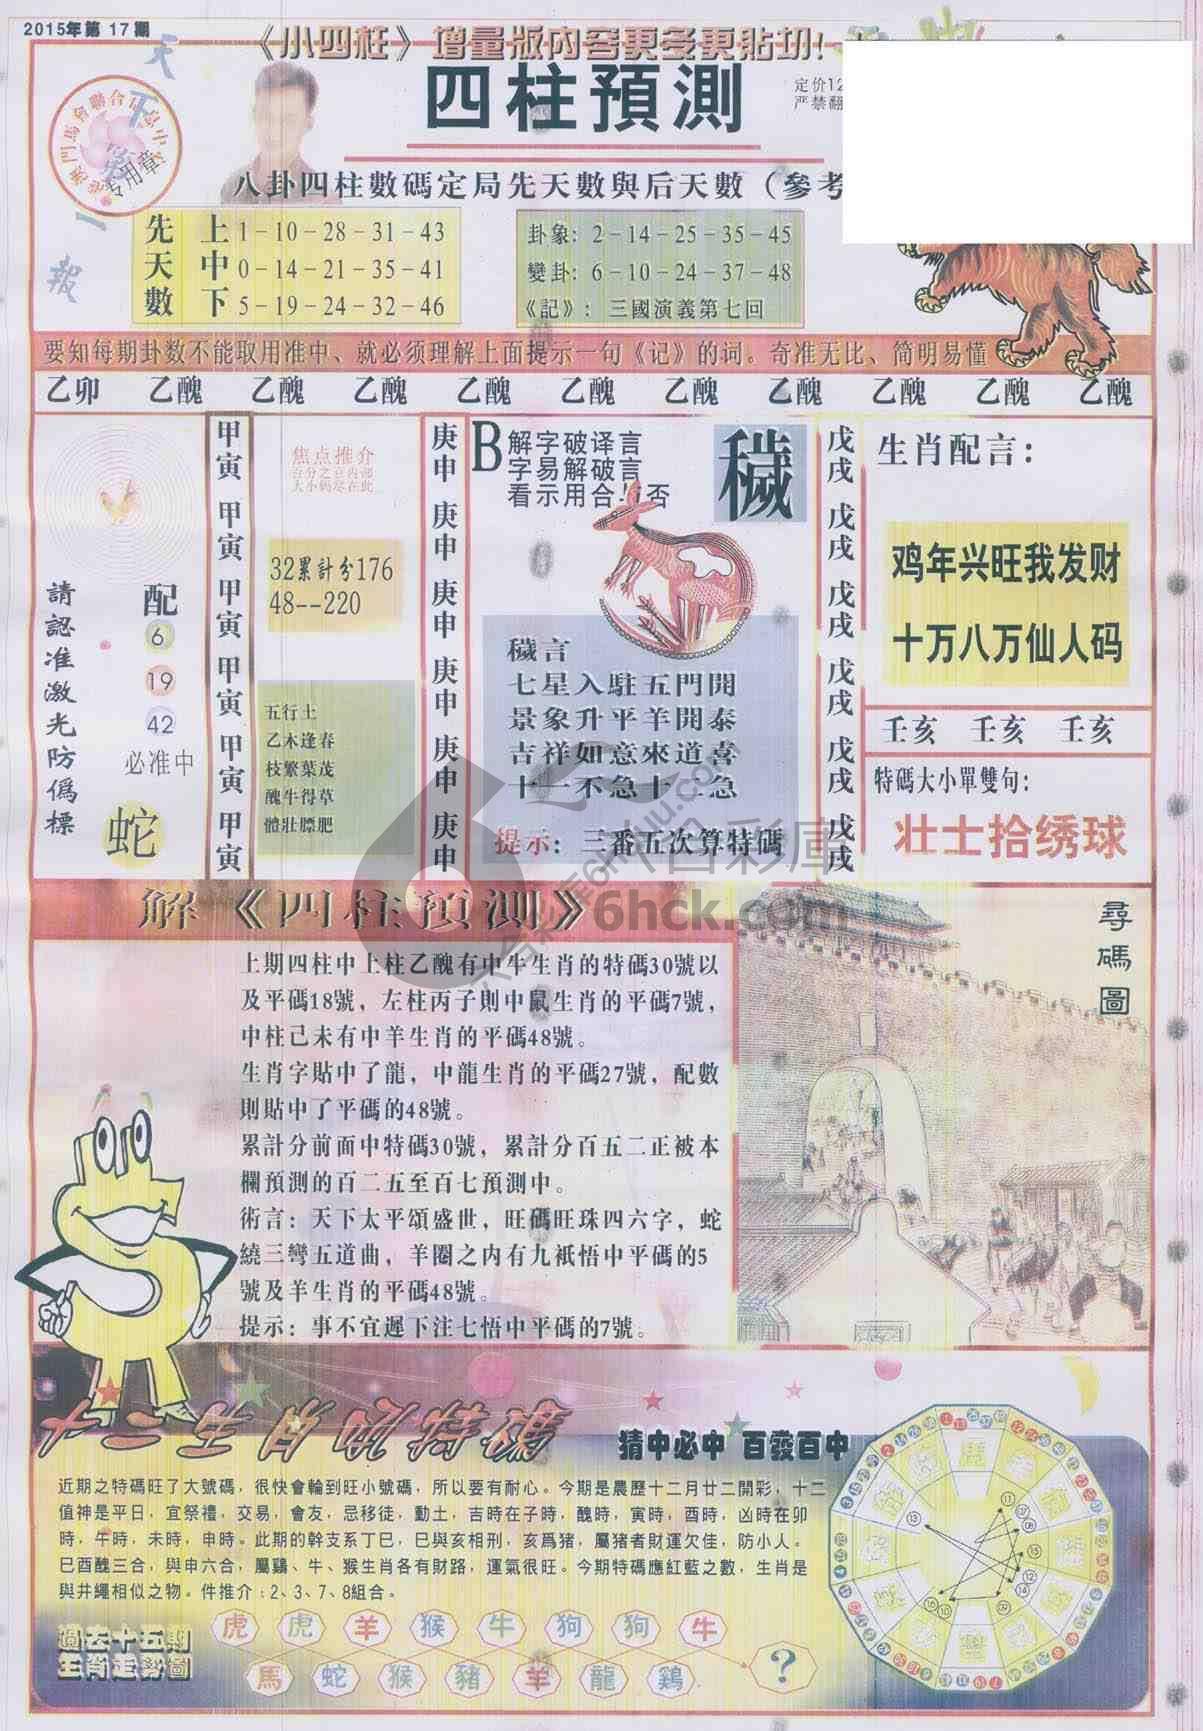 2015年第17期
《小四柱》增量版内容更多更貼切!
天下第一報
港澳門馬會聯合信息中心
专用章
四柱預測
定价12
严禁翻
八卦四柱數碼定局先天數與后天數（參考
先天數
上 1-10-28-31-43
中 0-14-21-35-41
下 5-19-24-32-46
卦象: 2-14-25-35-45
變卦: 6-10-24-37-48
《記》: 三國演義第七回
要知每期卦数不能取用准中、就必须理解上面提示一句《记》的词。奇准无比、简明易懂
乙卯 乙醜 乙醜 乙醜 乙醜 乙醜 乙醜 乙醜 乙醜 乙醜 乙醜
請認准激光防僞標
配
6
19
42
必准中
蛇
甲寅 甲寅 甲寅 甲寅 甲寅 甲寅
焦点推介
百分之百内部
大小码尽在此
32累計分176
48--220
五行土
乙木逢春
枝繁葉茂
醜牛得草
體壯膘肥
庚申 庚申 庚申 庚申 庚申 庚申
B
解字破译言
字易解破言
看示用合与否
穢
穢言
七星入駐五門開
景象升平羊開泰
吉祥如意來道喜
十一不急十二急
提示: 三番五次算特碼
戊戌 戊戌 戊戌 戊戌 戊戌 戊戌
生肖配言:
鸡年兴旺我发财
十万八万仙人码
壬亥 壬亥 壬亥
特碼大小單雙句:
壮士拾绣球
六合彩庫
6hck.com
解《四柱預測》
上期四柱中上柱乙醜有中牛生肖的特碼30號以
及平碼18號，左柱丙子則中鼠生肖的平碼7號，
中柱己未有中羊生肖的平碼48號。
生肖字貼中了龍，中龍生肖的平碼27號，配數
則貼中了平碼的48號。
累計分前面中特碼30號，累計分百五二正被本
欄預測的百二五至百七預測中。
術言: 天下太平頌盛世，旺碼旺珠四六字，蛇
繞三彎五道曲，羊圈之内有九祇悟中平碼的5
號及羊生肖的平碼48號。
提示: 事不宜遲下注七悟中平碼的7號。
尋碼圖
猜中必中 百發百中
近期之特碼旺了大號碼，很快會輪到旺小號碼，所以要有耐心。今期是農歷十二月廿二開彩，十二
值神是平日，宜祭禮，交易，會友，忌移徒，動土，吉時在子時，醜時，寅時，酉時，凶時在卯
時，午時，未時，申時。此期的幹支系丁巳，巳與亥相刑，亥爲猪，屬猪者財運欠佳，防小人。
巳酉醜三合，與申六合，屬鷄、牛、猴生肖各有財路，運氣很旺。今期特碼應紅藍之數，生肖是
與井繩相似之物。件推介:2、3、7、8組合。
過去十五期
生肖走勢圖
虎 虎 羊 猴 牛 狗 狗 牛
馬 蛇 猴 豬 羊 龍 鷄
?